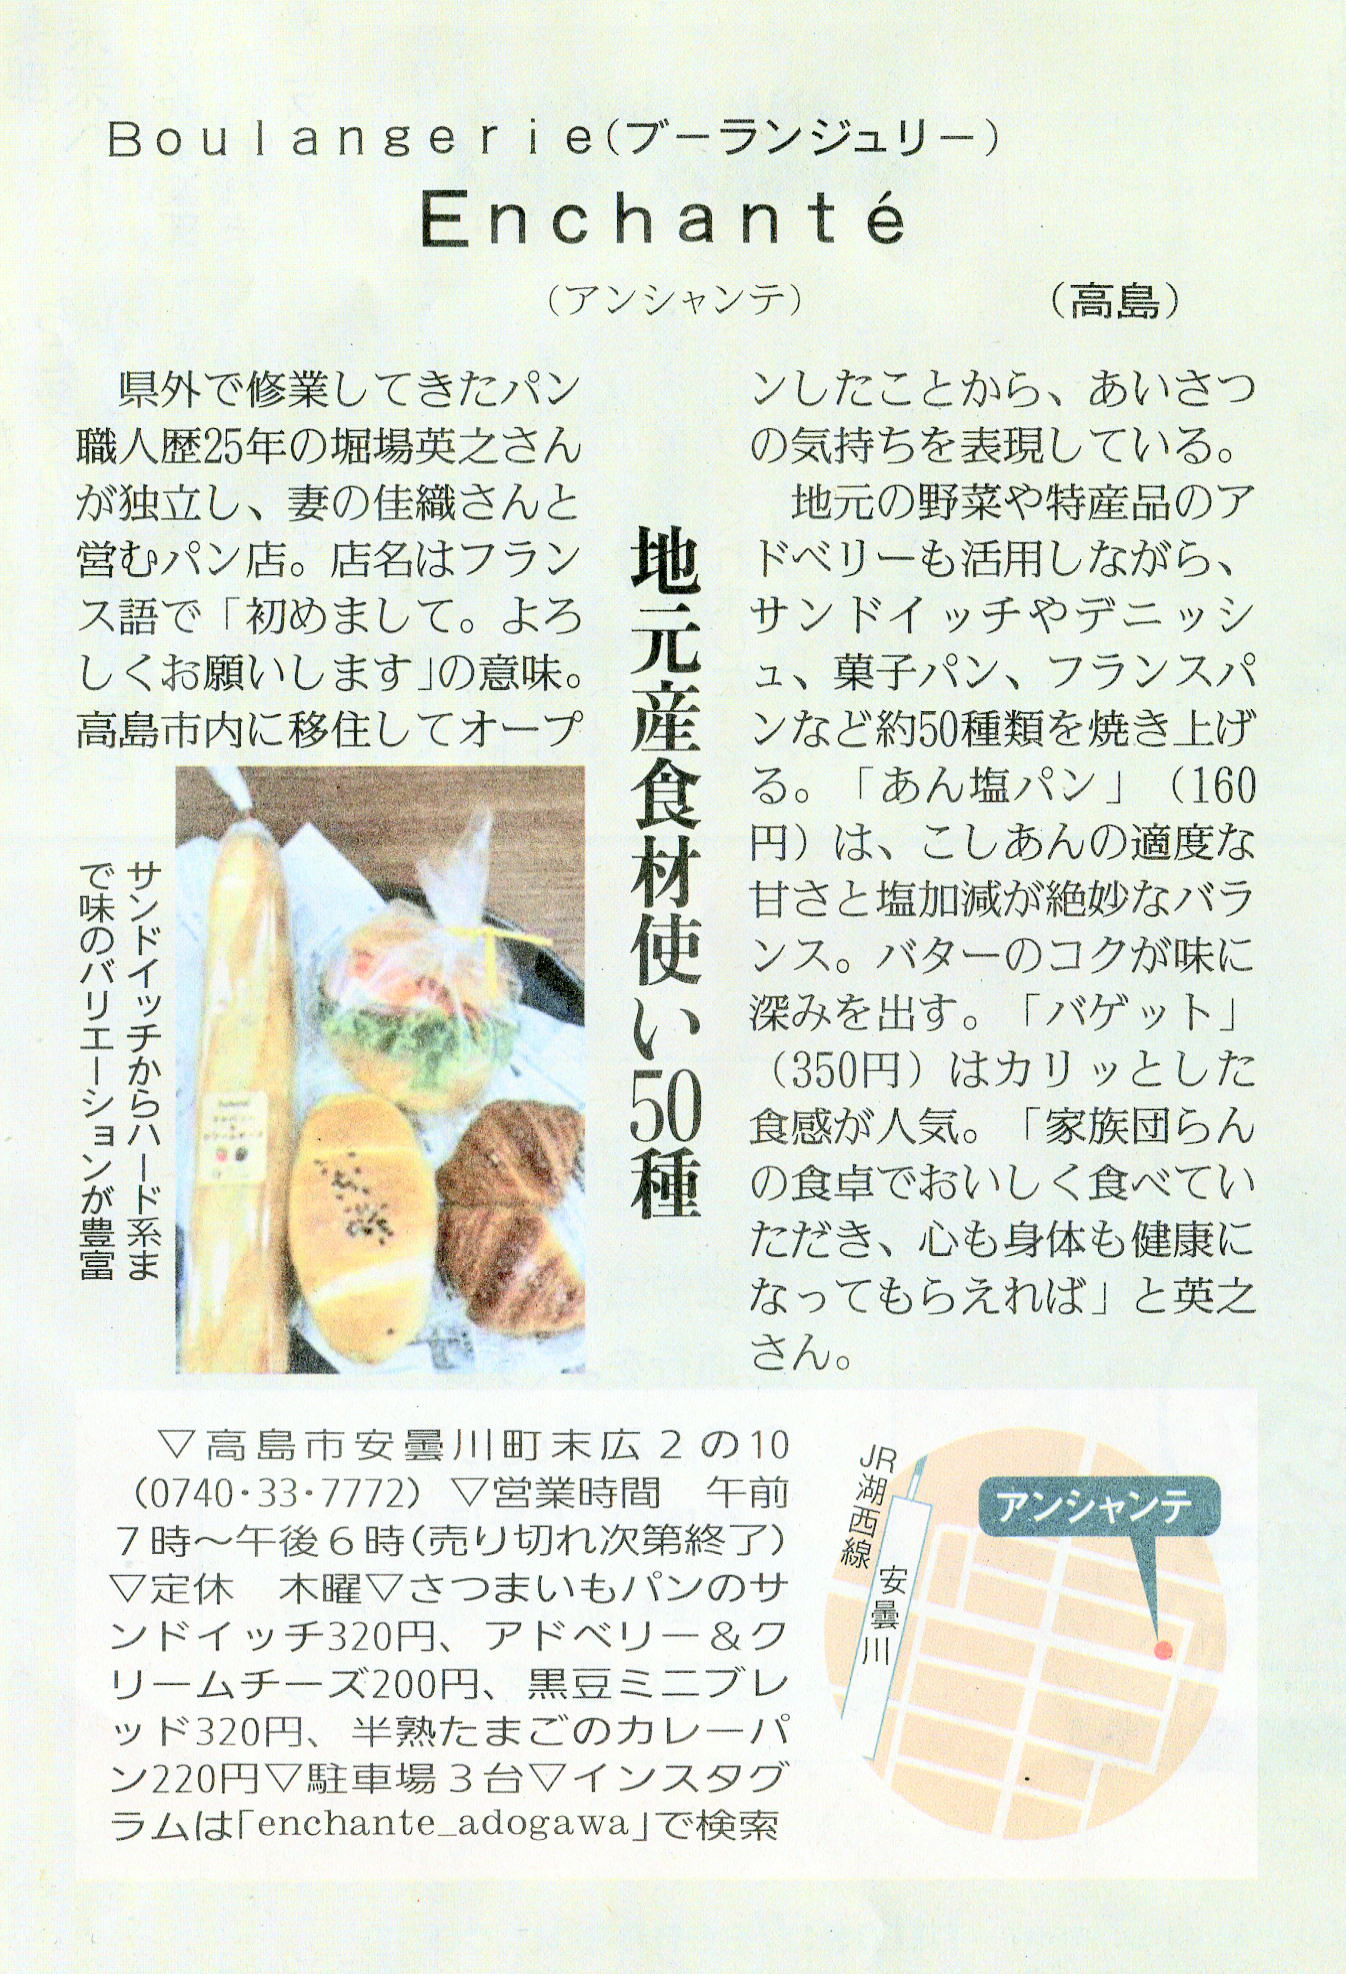 Boulangerie(ブーランジュリー)
Enchanté
(アンシャンテ)
(高島)
地元産食材使い50種
　県外で修業してきたパン
職人歴25年の堀場英之さん
が独立し、妻の佳織さんと
営むパン店。店名はフラン
ス語で「初めまして。よろ
しくお願いします」の意味。
高島市内に移住してオープ
ンしたことから、あいさつ
の気持ちを表現している。
　地元の野菜や特産品のア
ドベリーも活用しながら、
サンドイッチやデニッシ
ュ、菓子パン、フランスパ
ンなど約50種類を焼き上げ
る。「あん塩パン」（160
円）は、こしあんの適度な
甘さと塩加減が絶妙なバラ
ンス。バターのコクが味に
深みを出す。「バゲット」
（350円）はカリッとした
食感が人気。「家族団らん
の食卓でおいしく食べてい
ただき、心も身体も健康に
なってもらえれば」と英之
さん。
サンドイッチからハード系ま
で味のバリエーションが豊富
　▽高島市安曇川町末広２の10
（0740・33・7772）▽営業時間　午前
７時～午後６時(売り切れ次第終了)
▽定休　木曜▽さつまいもパンのサ
ンドイッチ320円、アドベリー＆ク
リームチーズ200円、黒豆ミニブレ
ッド320円、半熟たまごのカレーパ
ン220円▽駐車場３台▽インスタグ
ラムは「enchante_adogawa」で検索
JR湖西線
安曇川
アンシャンテ